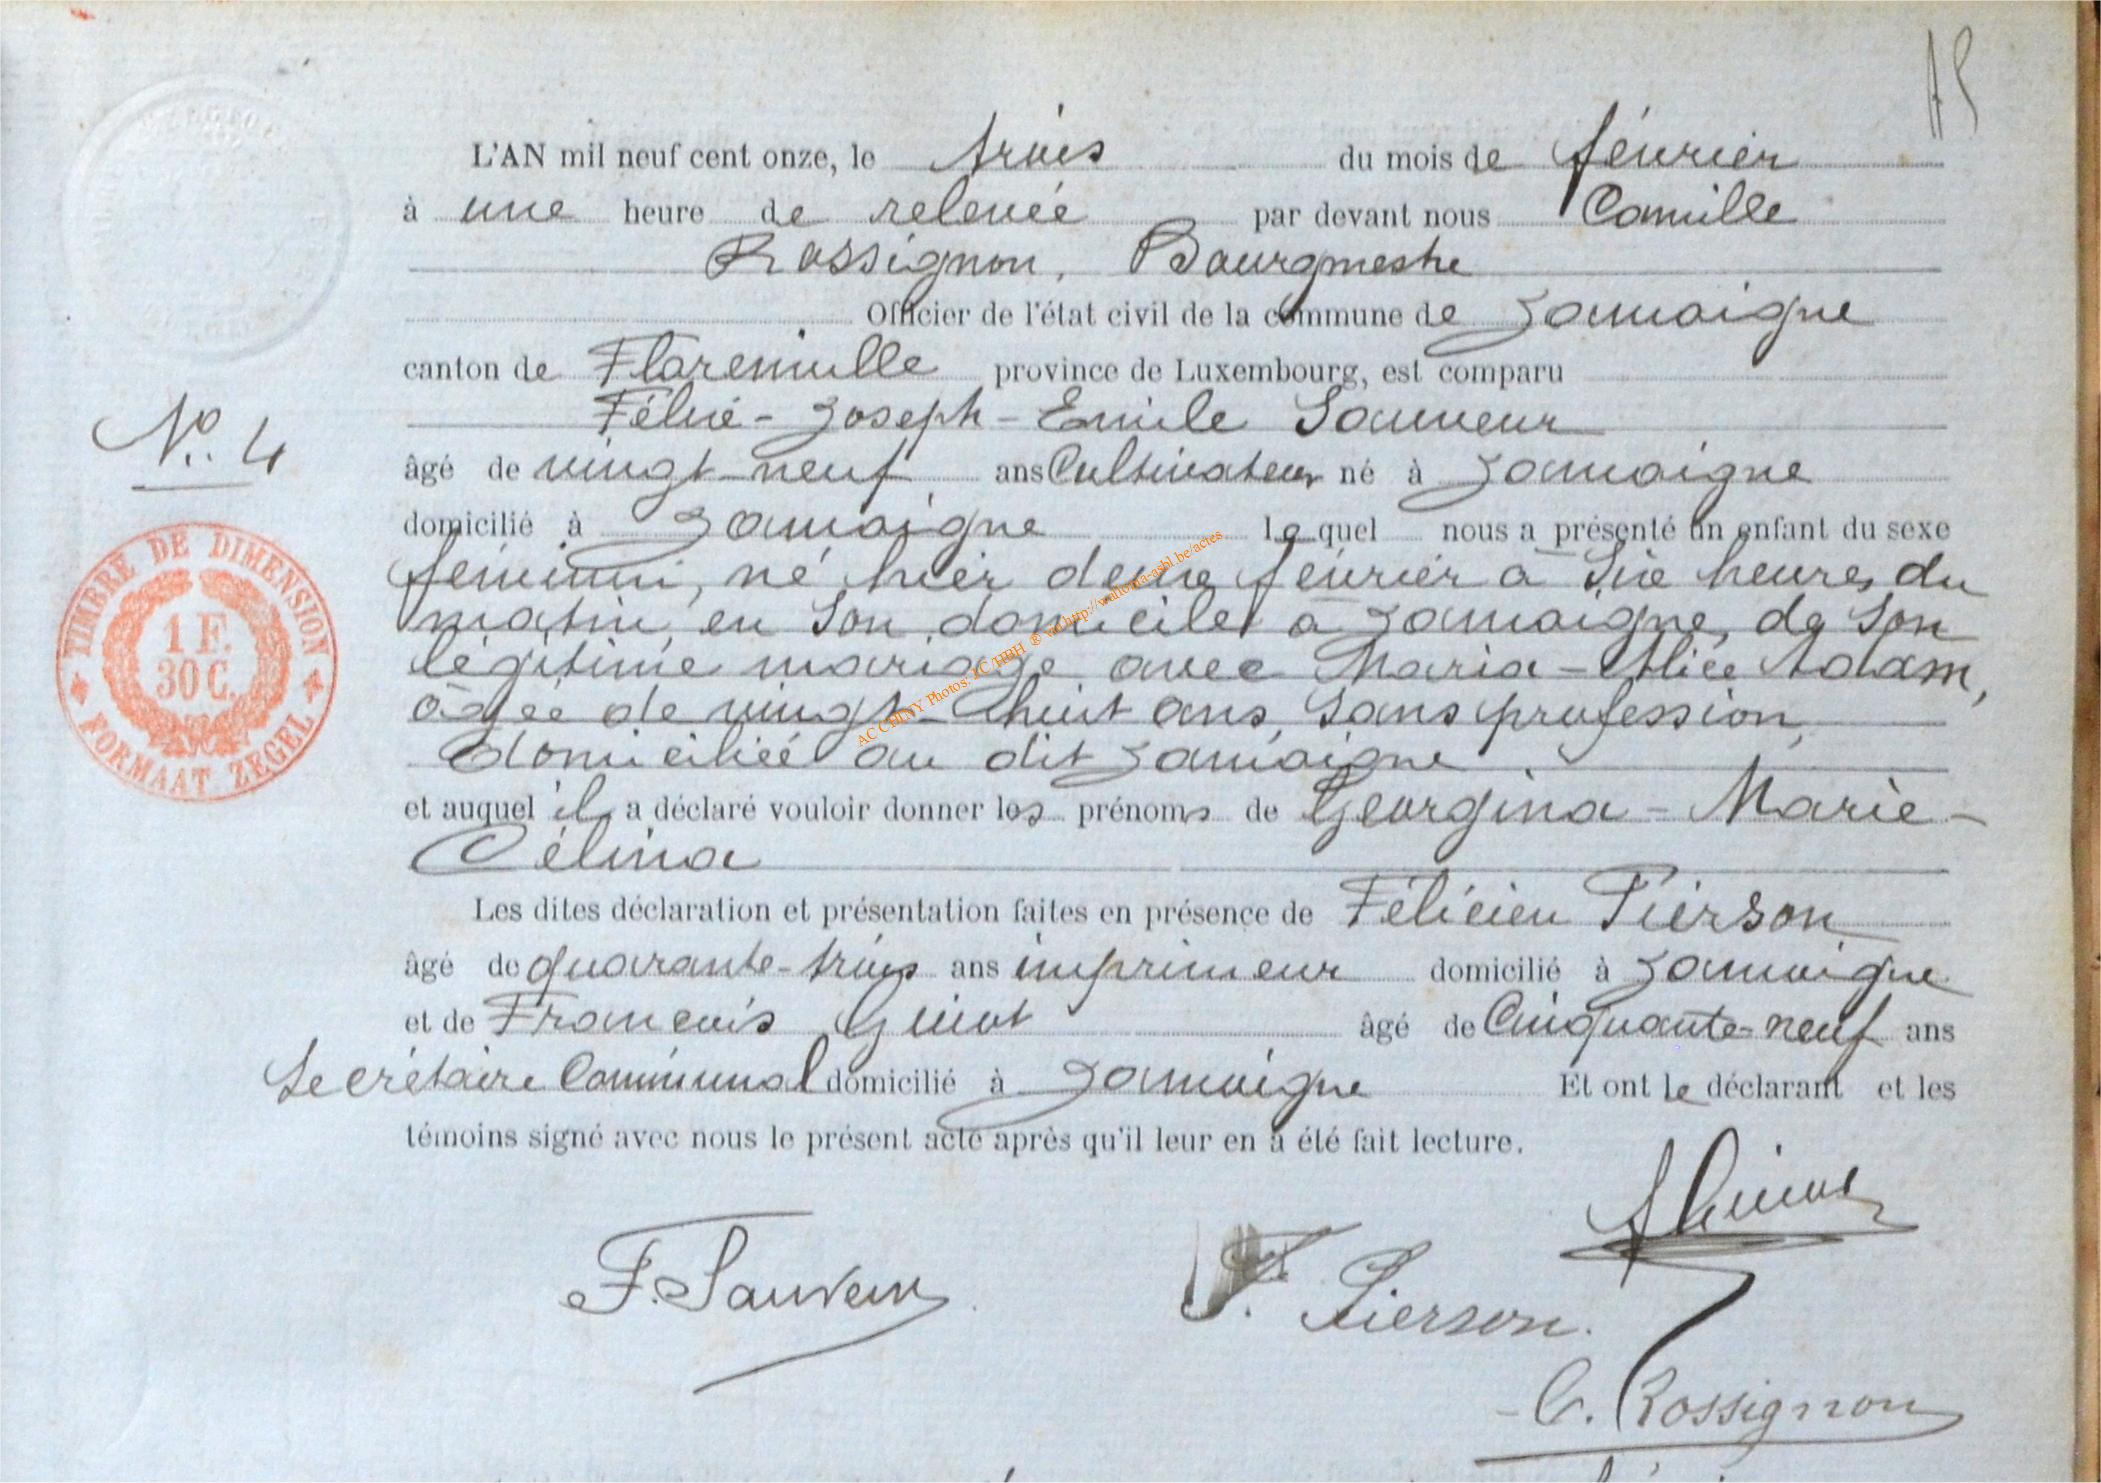 A S
L'AN mil neuf cent onze, le trois du mois de février
à une heure de relevée par devant nous Camille
Rossignon, Bourgmestre
Officier de l'état civil de la commune de Jamoigne
canton de Florenville province de Luxembourg, est comparu
Félix-Joseph-Emile Sauveur
No. 4
âgé de vingt-neuf ans Cultivateur né à Jamoigne
domicilié à Jamoigne lequel nous a présenté un enfant du sexe
féminin, né hier deux février à six heures du
matin, en son domicile à Jamoigne, de son
légitime mariage avec Maria-Alice Adam,
âgée de vingt-huit ans, sans profession,
domiciliée au dit Jamoigne
et auquel il a déclaré vouloir donner les prénoms de Georgina-Marie-
Célina
Les dites déclaration et présentation faites en présence de Félicien Pierson
âgé de quarante-trois ans imprimeur domicilié à Jamoigne
et de François Guiot âgé de Cinquante-neuf ans
Secrétaire Communal domicilié à Jamoigne Et ont le déclarant et les
témoins signé avec nous le présent acte après qu'il leur en a été fait lecture.
F. Sauveur
F. Pierson.
C. Rossignon
TIMBRE DE DIMENSION
1 F.
30 C.
FORMAAT ZEGEL
AC CHINY Photos: JC/HBH ® via http://wallonia-asbl.be/actes